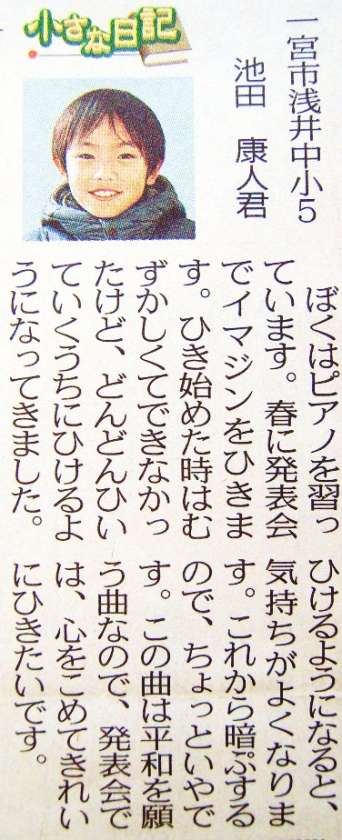 小さな日記
一宮市浅井中小5
池田　康人君
ぼくはピアノを習っ
ています。春に発表会
でイマジンをひきま
す。ひき始めた時はむ
ずかしくてできなかっ
たけど、どんどんひい
ていくうちにひけるよ
うになってきました。
ひけるようになると、
気持ちがよくなりま
す。これから暗ぷする
ので、ちょっといやで
す。この曲は平和を願
う曲なので、発表会で
は、心をこめてきれい
にひきたいです。